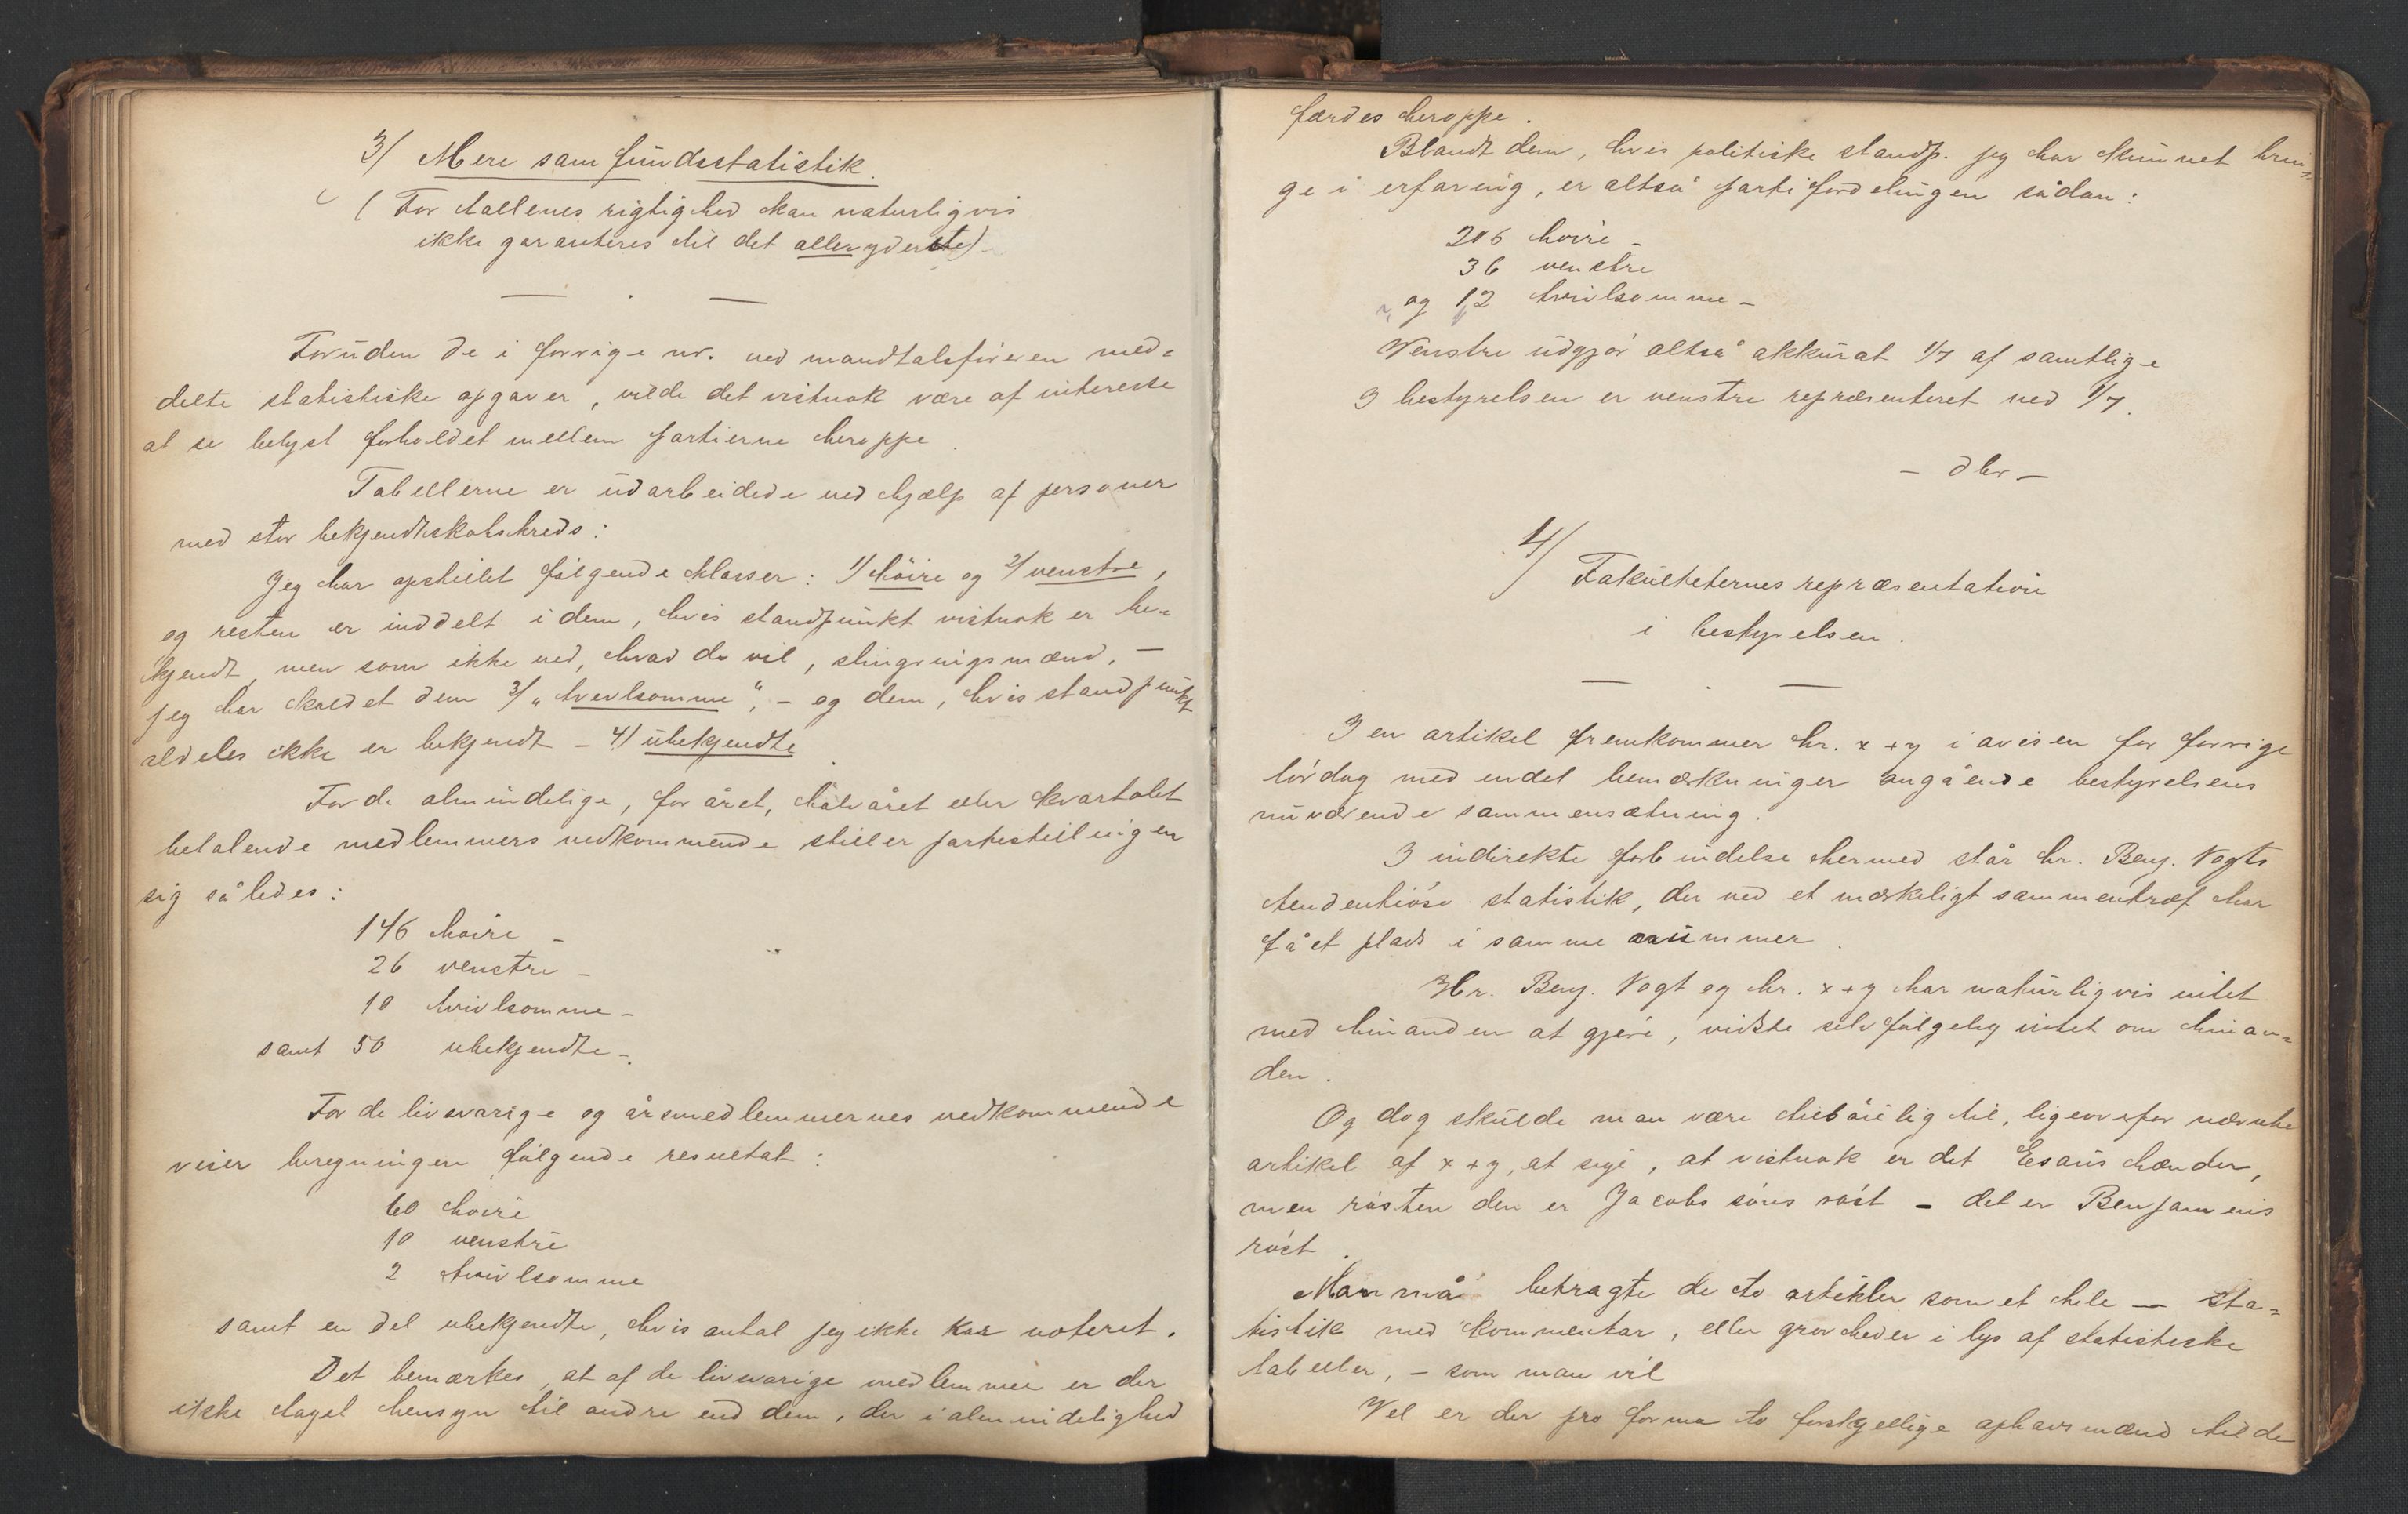 3/ Mere samfundsstatistik.
(For tallenes rigtighed kan naturligvis
ikke garanteres til det alleryderste)
Foruden de i forrige nr. ved mandtalsføreren med=
delte statistiske opgaver, vilde det vistnok være af interesse
at se belyst forholdet mellem partierne heroppe.
Tabellerne er udarbeidede ved hjælp af personer
med stor bekjendtskabskreds:
Jeg har opstillet følgende klasser: 1/ høire og 2/ venstre,
og resten er inddelt i dem, hvis standpunkt vistnok er be=
kjendt, men som ikke ved, hvad de vil, slingringsmænd, —
jeg har kaldet dem 3/ "tvivlsomme", — og dem, hvis standpunkt
aldeles ikke er bekjendt — 4/ ubekjendte.
For de almindelige, for året, halvåret eller kvartalet
betalende medlemmers vedkommende stiller partistillingen
sig således:
146 høire —
26 venstre —
10 tvivlsomme —
samt 50 ubekjendte —.
For de livsvarige og årsmedlemmernes vedkommende
viser beregningen følgende resultat:
60 høire
10 venstre
2 tvivlsomme
samt en del ubekjendte, hvis antal jeg ikke har noteret.
Det bemærkes, at af de livsvarige medlemmer er der
ikke taget hensyn til andre end dem, der i almindelighed
færdes heroppe.
Blandt dem, hvis politiske standp. jeg har kunnet brin=
ge i erfaring, er altså partifordelingen sådan:
206 høire —
36 venstre
og 12 tvivlsomme —
Venstre udgjør altså akkurat 1/7 af samtlige
I bestyrelsen er venstre repræsenteret ved 1/7.
— dbr —
4/ Fakulteternes repræsentation
i bestyrelsen.
I en artikel fremkommer hr. x + y i avisen for forrige
lørdag med endel bemærkninger angående bestyrelsens
nuværende sammensætning.
I indirekte forbindelse hermed står hr. Benj. Vogts
tendentiøse statistik, der ved et mærkeligt sammentræf har
fået plads i samme nummer.
Hr. Benj. Vogt og hr. x + y har naturligvis intet
med hinanden at gjøre, vidste selvfølgelig intet om hinan=
den.
Og dog skulde man være tilbøielig til, ligeoverfor nævnte
artikel af x + y, at sige, at vistnok er det Esaus hænder,
men røsten den er Jacobs søns røst — det er Benjamins
røst.
Man må betragte de to artikler som et hele — sta=
tistik med kommentar, eller grovheder i lys af statistiske
tabeller, — som man vil
Vel er der pro forma to forskjellige ophavsmænd til de